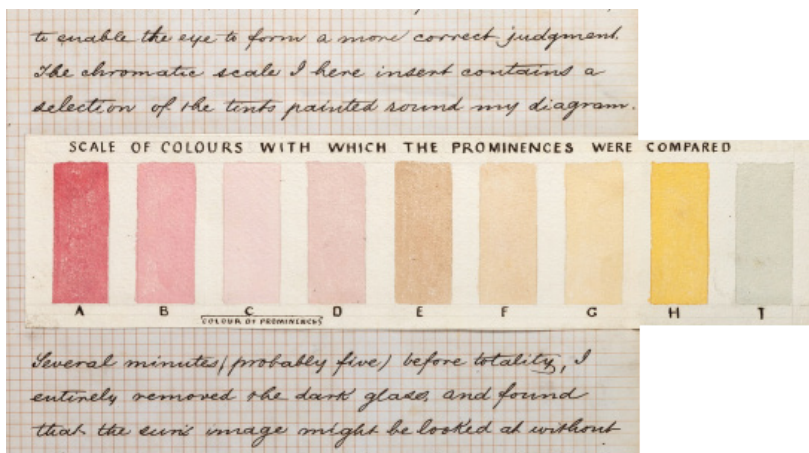 to enable the eye to form a more correct judgment.
The chromatic scale I here insert contains a
selection of the tints painted round my diagram.
SCALE OF COLOURS WITH WHICH THE PROMINENCES WERE COMPARED
A B C D E F G H T
COLOUR OF PROMINENCES
Several minutes (probably five) before totality, I
entirely removed the dark glass, and found
that the sun's image might be looked at without